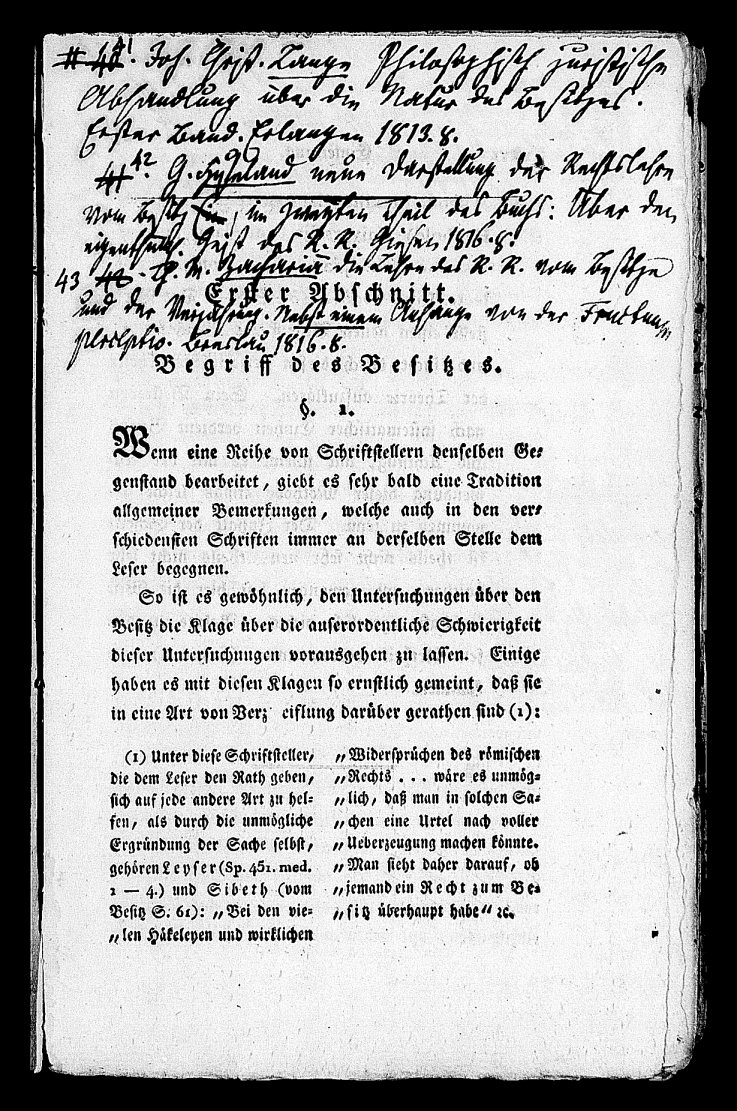 41. Joh. Christ. Lange Philosophisch juristische
Abhandlung über die Natur des Besitzes.
Erster Band. Erlangen 1813. 8.
42. G. Hufeland neue Darstellung der Rechtslehre
vom Besitz, im zweyten Theil des Buchs: Über den
eigenthüml. Geist des R. R. Giesen 1816. 8.
43 Zachariä die Lehre des R. R. vom Besitze
und der Verjährung. Nebst einem Anhange von der Fructuum
perceptio. Breslau 1816. 8.
Erster Abschnitt.
Begriff des Besitzes.
§. 1.
Wenn eine Reihe von Schriftstellern denselben Ge-
genstand bearbeitet, giebt es sehr bald eine Tradition
allgemeiner Bemerkungen, welche auch in den ver-
schiedensten Schriften immer an derselben Stelle dem
Leser begegnen.
So ist es gewöhnlich, den Untersuchungen über den
Besitz die Klage über die auserordentliche Schwierigkeit
dieser Untersuchungen vorausgehen zu lassen. Einige
haben es mit diesen Klagen so ernstlich gemeint, daß sie
in eine Art von Verz eiflung darüber gerathen sind (1):
(1) Unter diese Schriftsteller,
die dem Leser den Rath geben,
sich auf jede andere Art zu hel-
fen, als durch die unmögliche
Ergründung der Sache selbst,
gehören Leyser (Sp. 451. med.
1 — 4.) und Sibeth (vom
Besitz S. 61): „Bei den vie-
„len Häkeleyen und wirklichen
„Widersprüchen des römischen
„Rechts . . . wäre es unmög-
„lich, daß man in solchen Sa-
„chen eine Urtel nach voller
„Ueberzeugung machen könnte.
„Man sieht daher darauf, ob
„jemand ein Recht zum Be-
„sitz überhaupt habe“ ꝛc.